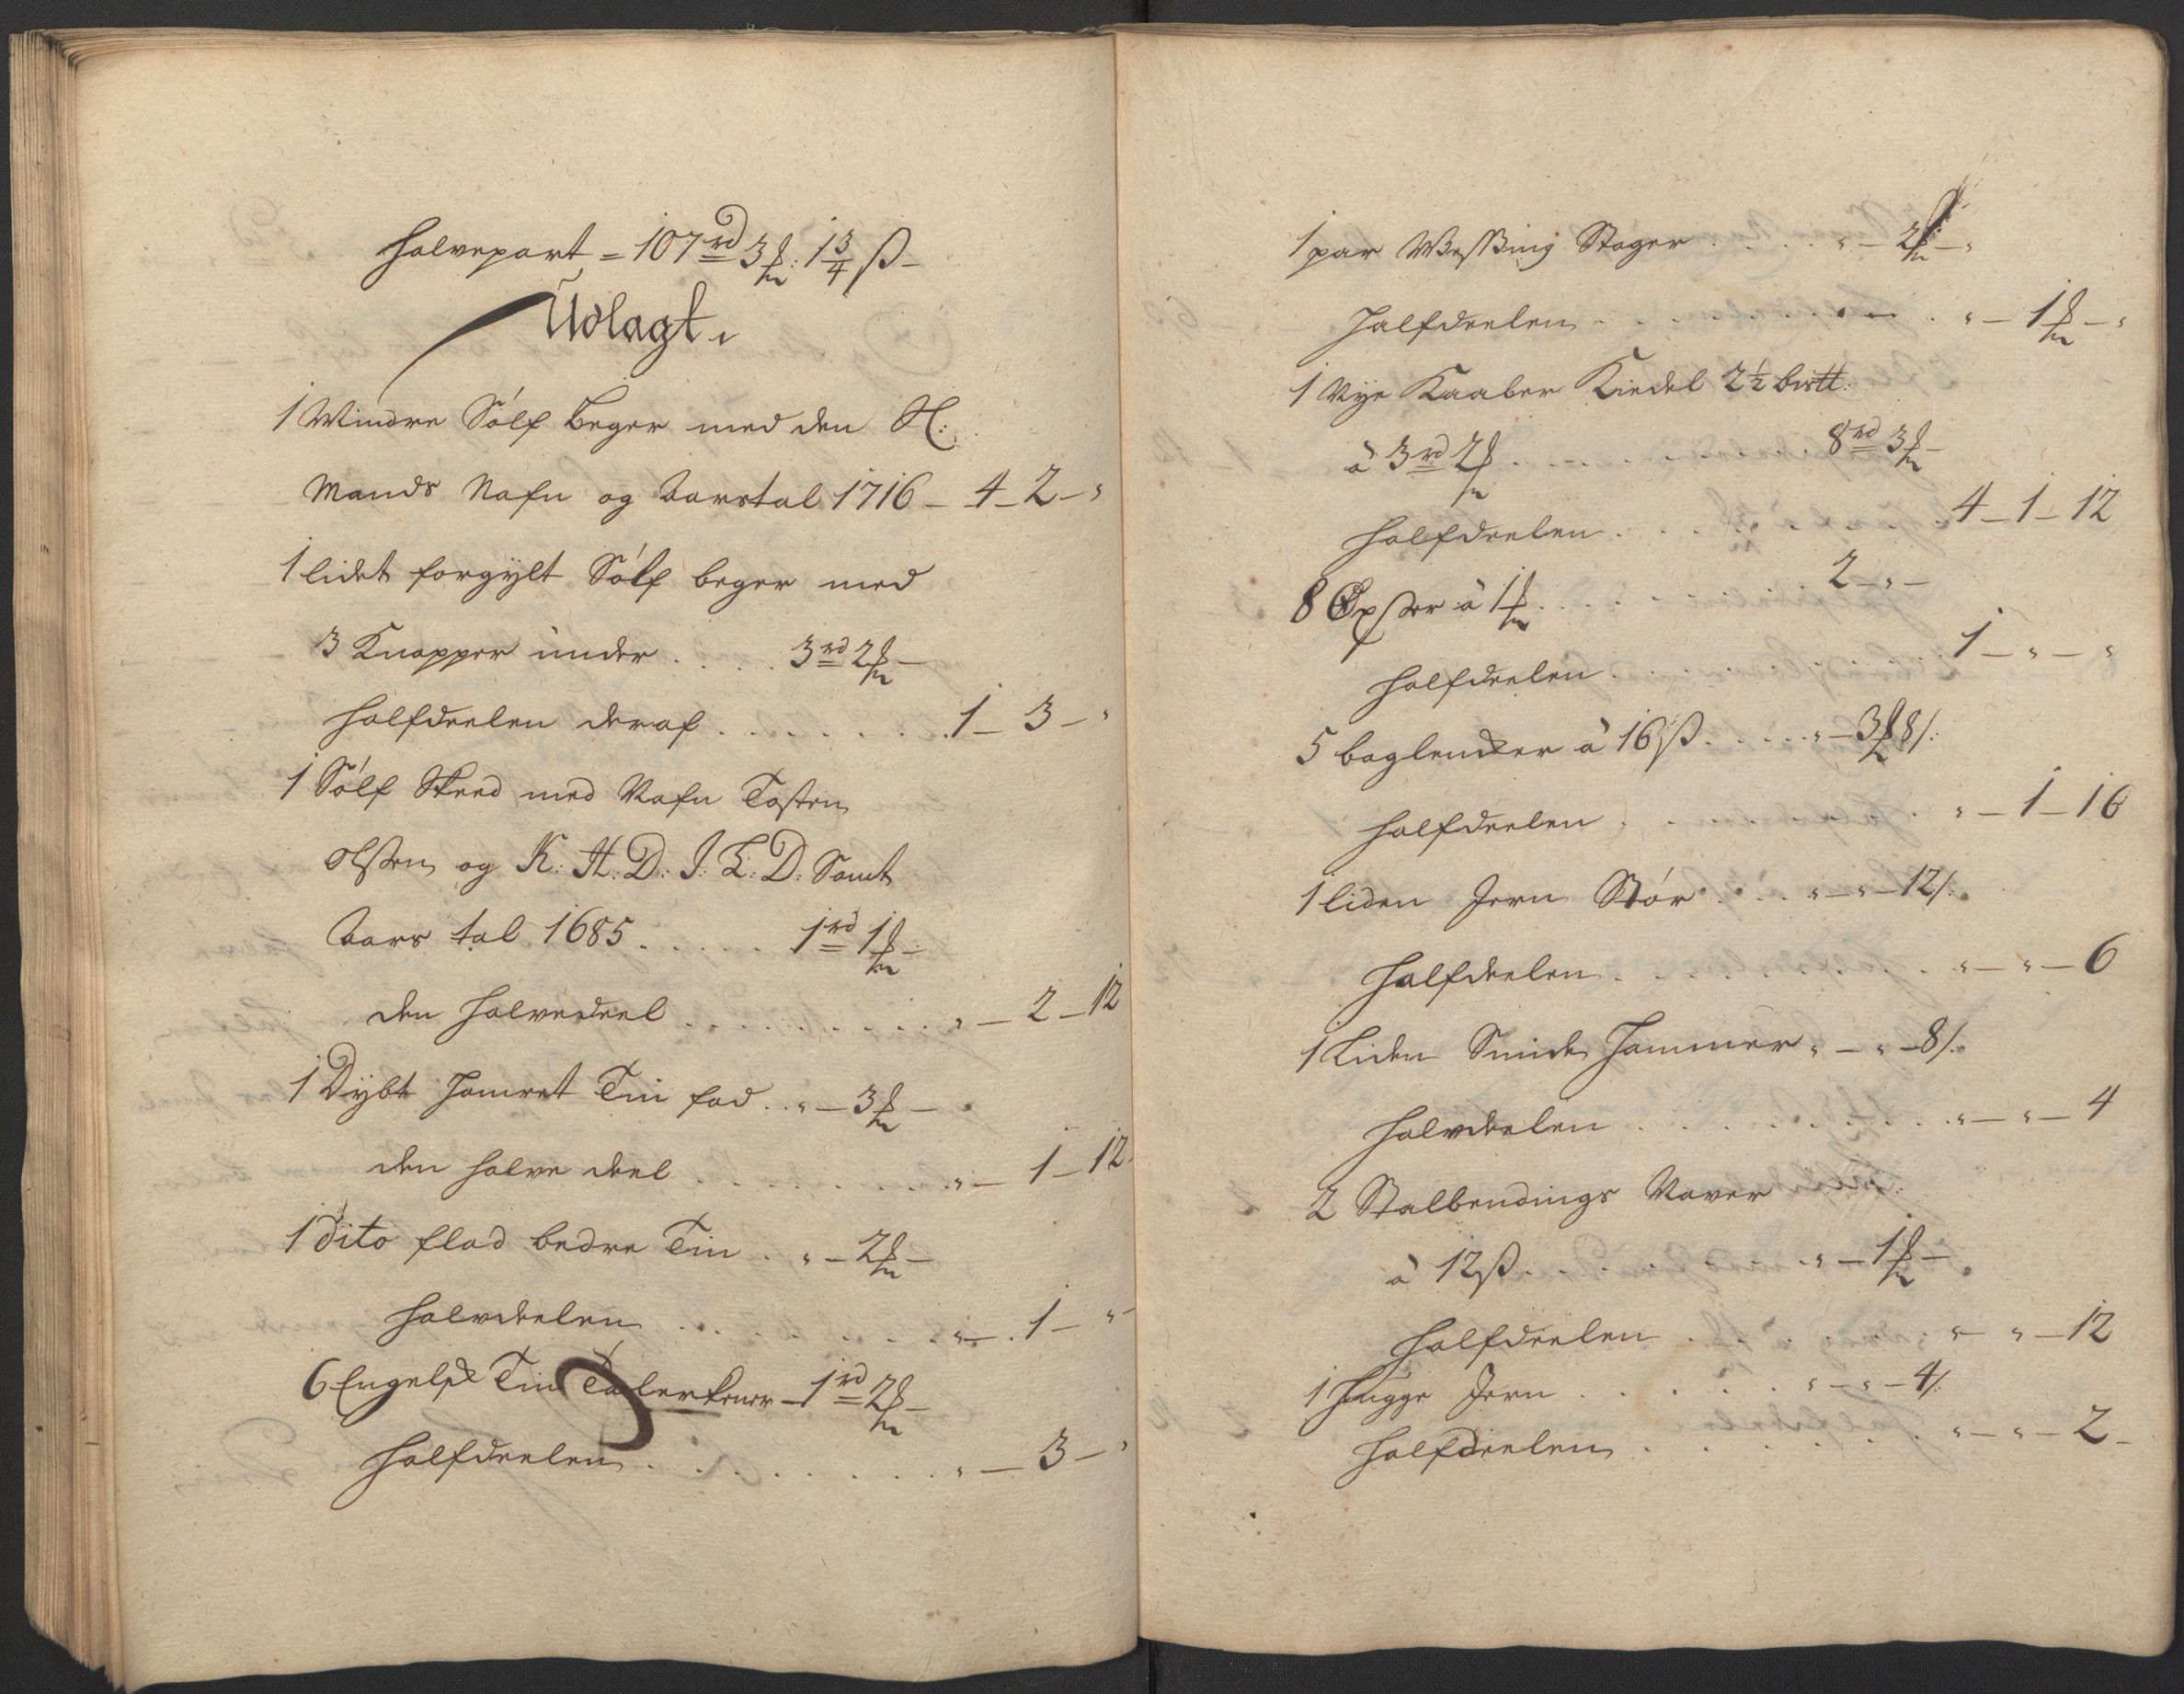 halvepart = 107 rd 3 ℔: 1 3/4 ß –
Udlagt.
1 Mindre Sólf beger med den S:
Mands Nafn og Aarstal 1716 – 4 – 2 – "
1 lidet forgylt Sólf beger med
3 Knapper under . . . . 3 rd 2 ℔ –
halfdeelen deraf . . . . . . . . 1 – 3 – "
1 Sólf Skeed med Nafn Tosten
Olssen og K: H: D: I: L: D: Samt
Aars tal 1685 . . . . . 1 rd 1 ℔ –
den halvedeel . . . . . . . . . . " – 2 – 12
1 Dybt hamret Tin fad . . " – 3 ℔ –
den halve deel . . . . . . . . . " – 1 – 12
1 dito flad bedre Tin . . " – 2 ℔ –
halvdeelen . . . . . . . . . " – 1 – "
6 Engelsk Tin Talerkener – 1 rd 2 ℔ –
halfdeelen . . . . . . . . . " – 3 – "
1 par Messing Stager . . . . . " – 2 ℔ – "
halfdeelen . . . . . . . . . . . " – 1 ℔ – "
1 Nye Kaaber Kiedel 2 1/2 bistt:
à 3 rd 2 ℔ . . . . . . . 8 rd 3 ℔ –
halfdeelen . . . . . . . 4 – 1 – 12
8 à 1 ℔ . . . . . . 2 – " –
halfdeelen . . . . . . . . 1 – " – "
5 baglender à 16 ß . . . . . " – 3 ℔ 8 /:
halfdeelen . . . . . . . . " – 1 – 16
1 liden Jern Stór . . . . " – " – 12 /:
halfdeelen . . . . . . . . . " – " – 6
1 Liden Smide Hammer " – " – 8 /:
halvdeelen . . . . . . . . . " – " – 4
2 Stalbendings Naver
à 12 ß . . . . . . . . " – 1 ℔ –
halfdeelen . . . . . . . " – " – 12
1 Hugge Jern . . . . . . " – " – 4 /:
halfdeelen . . . . . . . " – " – 2 –